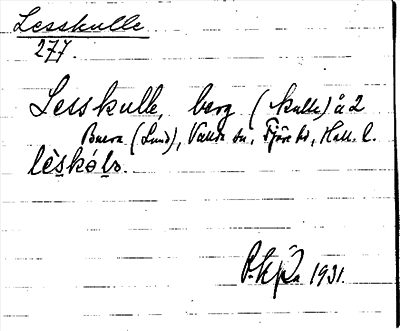 Lesskulle
277.
Lesskulle, berg (kulle) å 2
Buera (Lund), Valda sn, Fjäre hd, Hall. l.
lèskúlə.
1931.